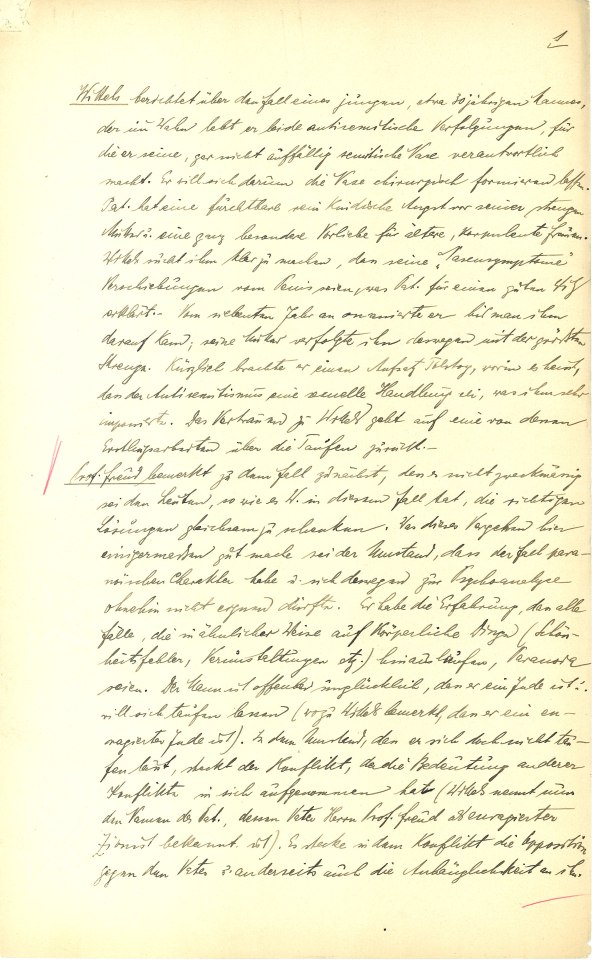 1
Wittels berichtet über den Fall eines jungen, etwa 30 jährigen Mannes,
der im Wahn lebt er leide antisemitische Verfolgungen, für
die er seine, gar nicht auffällig semitische Nase verantwortlich
macht. Er will sich darum die Nase chirurgisch formieren lassen.
Pat. hat eine furchtbare rein kindische Angst vor seiner strengen
Mutter u. eine ganz besondere Vorliebe für ältere, korpulente Frauen.
Wittels sucht ihm klar zu machen, dass seine "Nasensymptome"
Verschiebungen vom Penis seien, was Pat. für einen guten Witz
erklärt.- Vom siebenten Jahr an onanierte er bis man ihm
darauf kam; seine Mutter verfolgte ihn deswegen mit der größten
Strenge. Kürzlich brachte er einen Aufsatz Tolstoy, worin es heisst,
dass der Antisemitismus eine sexuelle Handlung sei, was ihm sehr
imponierte. Das Vertrauen zu Wittels geht auf eine von dessen
Erstlingsarbeiten über die Taufen zurück.-
Prof. Freud bemerkt zu dem Fall zunächst, dass es nicht zweckmässig
sei den Leuten, so wie es W. in diesem Fall tat, die richtigen
Lösungen gleichsam zu schenken. Was dieses Vorgehen hier
einigermassen gut mache sei der Umstand, dass der Fall para-
noischen Charakter habe u. sich deswegen zur Psychoanalyse
ohnehin nicht eignen dürfte. Er habe die Erfahrung, dass alle
Fälle, die in ähnlicher Weise auf körperliche Dinge (Schön-
heitsfehler, Verunstaltungen etz.) hinauslaufen, Paranoia
seien. Der Mann ist offenbar unglücklich, dass er ein Jude ist u.
will sich taufen lassen (wozu Wittels bemerkt, dass er ein en-
ragierter Jude ist). In dem Umstand, dass er sich doch nicht tau-
fen lässt, steckt der Konflikt, der die Bedeutung anderer
Konflikte in sich aufgenommen hat (Wittels nennt nun
den Namen des Pat., dessen Vater Herrn Prof. Freud als enragierter
Zionist bekannt ist). Es stecke in dem Konflikt die Opposition
gegen den Vater u. anderseits auch die Anhänglichkeit an ihn.